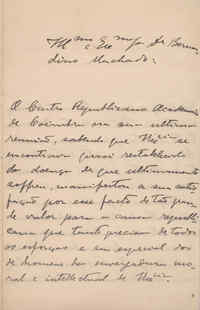 Illmo e Exmo Snr Dr Bernar-
dino Machado:
O Centro Republicano Academico
de Coimbra na sua ultima
reunião, sabendo que V. Excia se
encontrava quasi restabelecido
da doença de que ultimamente
soffreu, manifestou a sua satis-
fação por esse facto de tão gran-
de valor para a causa republi-
cana que tanto precisa de todos
os esforços e em especial dos
de homens da envergadura mo-
ral e intellectual de V. Excia.